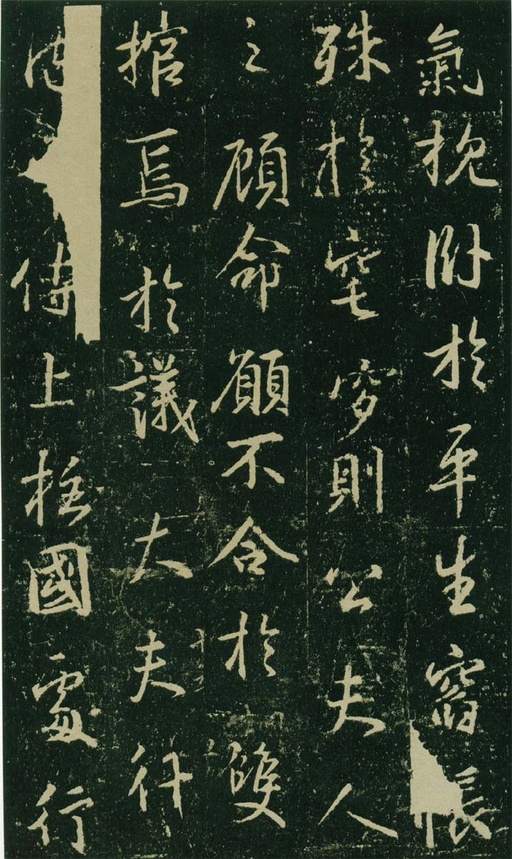 氣枕於平生帳
殊於窀穸則公夫人
之顧命願不合於雙
棺焉於議大夫行
侍上柱國處行